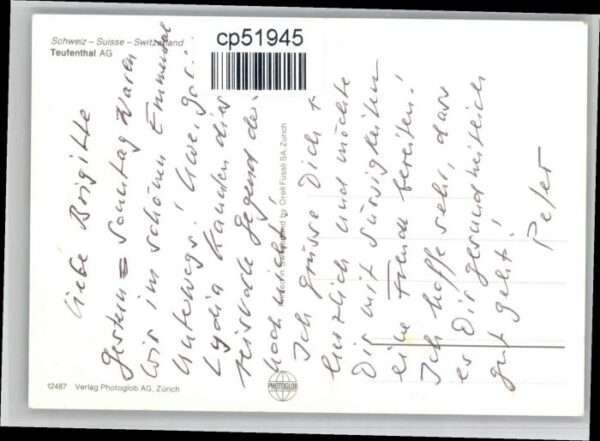 Schweiz – Suisse – Switzerland
Teufenthal AG
cp51945
Liebe Brigitte
Gestern = Sonntag waren
wir im schönen Emmental
Unterwegs! Uwe,
Lydia kannten diese
reizvolle Gegend
noch nicht!
Ich grüsse Dich +
herzlich und möchte
Dir mit Süssigkeiten
eine Freude bereiten!
Ich hoffe sehr, dass
es Dir gesundheitlich
gut geht!
Peter
by Orell Füssli SA, Zürich
t2487 Verlag Photoglob AG, Zürich
PHOTOGLOB